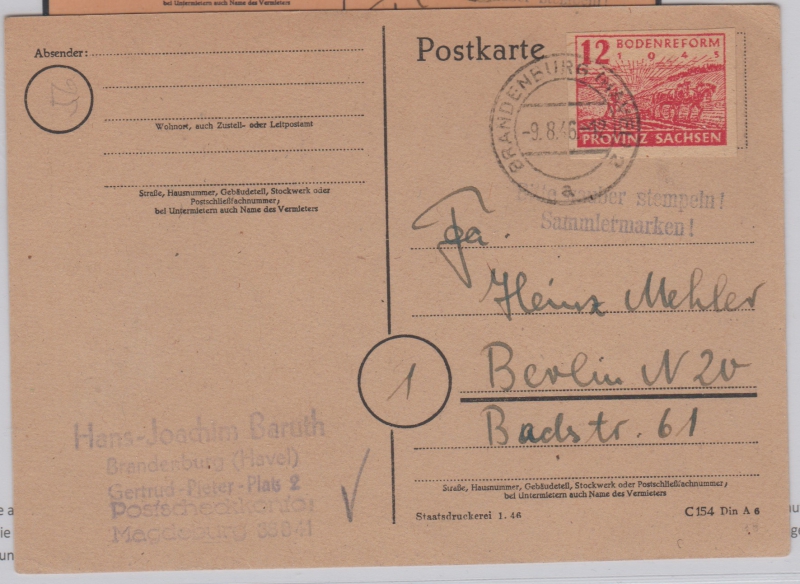 bei Untermietern auch Name des Vermieters
Absender:
Wohnort, auch Zustell- oder Leitpostamt
Straße, Hausnummer, Gebäudeteil, Stockwerk oder
Postschließfachnummer;
bei Untermietern auch Name des Vermieters
Hans-Joachim Baruth
Brandenburg (Havel)
Gertrud-Pieter-Platz 2
Postscheckkonto:
Magdeburg
Postkarte
12 BODENREFORM
1945
PROVINZ SACHSEN
BRANDENBURG
-9.8.46.
a
Bitte sauber stempeln!
Sammlermarken!
Fa.
Heinz Mehler
1
Berlin N 20
Badstr. 61
Straße, Hausnummer, Gebäudeteil, Stockwerk oder Postschließfachnummer;
bei Untermietern auch Name des Vermieters
Staatsdruckerei 1. 46
C 154 Din A 6